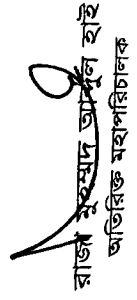 রাজা মুহম্মদ আব্দুল হাই
অতিরিক্ত মহাপরিচালক